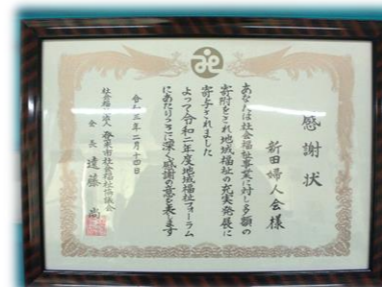 感謝状
新田婦人会様
あなたは社会福祉事業に対し多額の
寄附をされ地域福祉の充実発展に
寄与されました
よって令和二年度地域福祉フォーラム
にあたりここに深く感謝の意を表します
令和三年二月十四日
社会福祉法人 登米市社会福祉協議会
会長 遠藤 尚